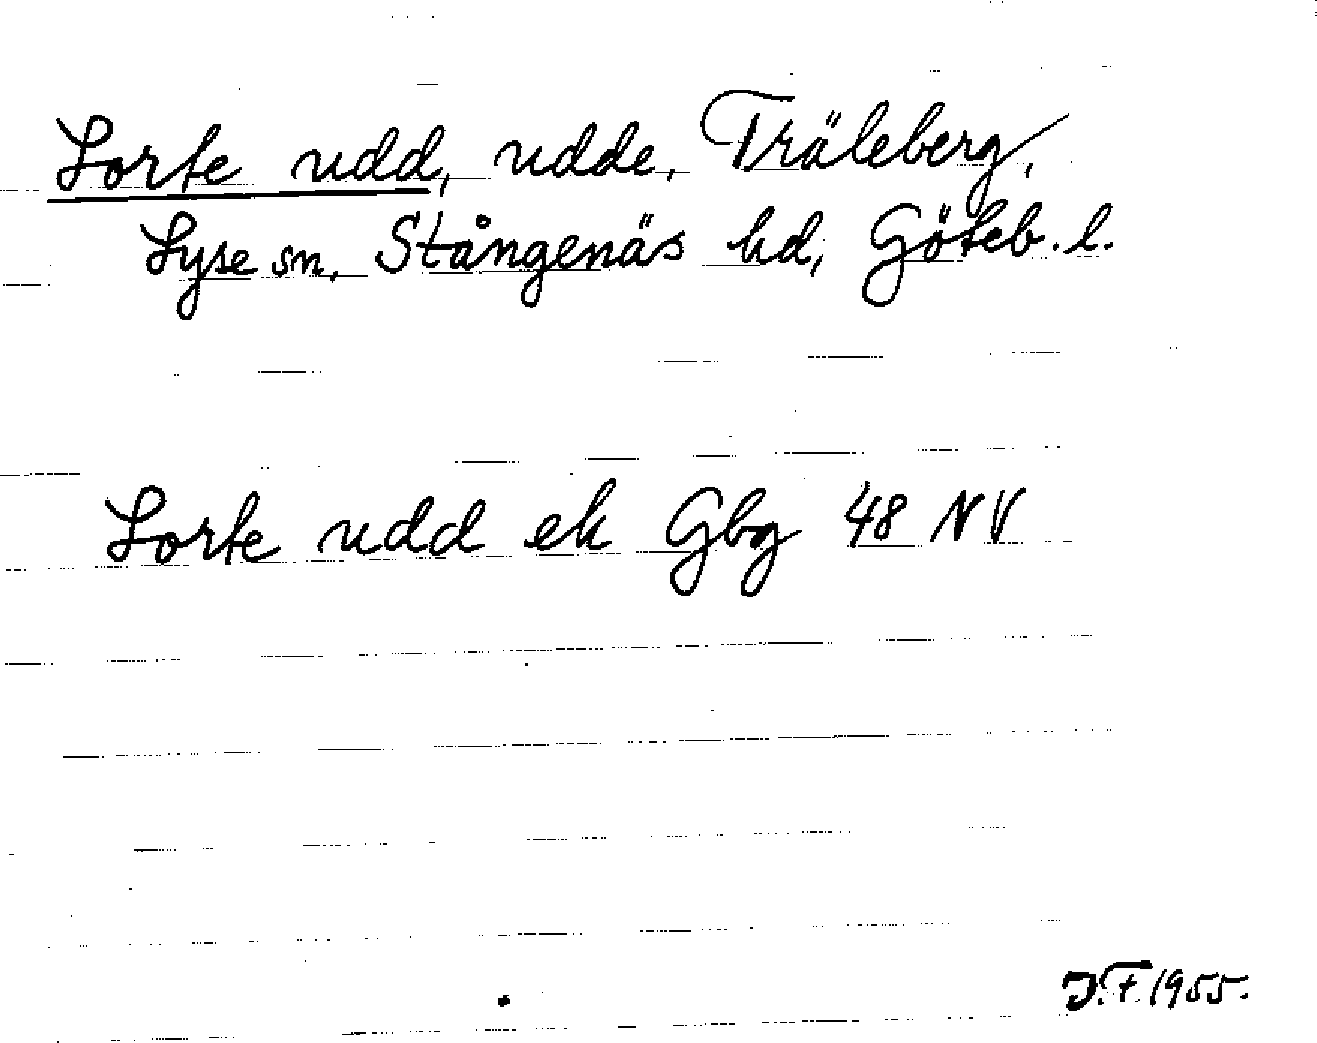 Lorte udd, udde, Träleberg,
Lyse sn, Stångenäs hd, Göteb. l.
Lorte udd ek Gbg 48 NV
J.F. 1955.